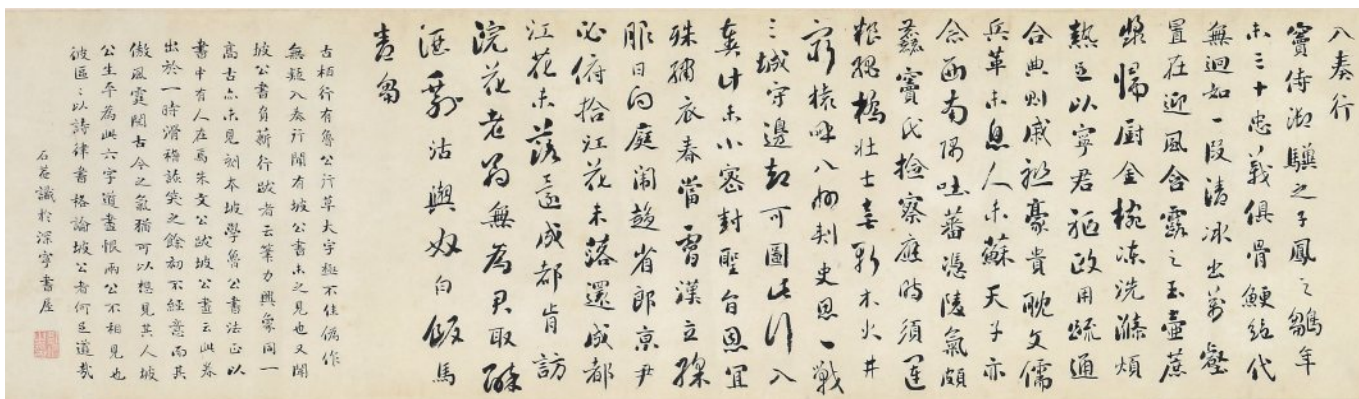 入奏行
竇侍御驥之子鳳之雛年
未三十忠義俱骨鯁絕代
無迥如一段清冰出萬壑
置在迎風含露之玉壺蔗
漿歸廚金椀凍洗滌煩
熱足以寧君軀政用疏通
合典則戚聯豪貴耽文儒
兵革未息人未蘇天子亦
念西南隅吐蕃憑陵氣頗
麤竇氏檢察應時須運
糧繩橋壯士喜斬木火井
窮猿呼八州刺史思一戰
三城守邊却可圖此行入
奏計未小密封聖旨恩宜
殊繡衣春當霄漢立綵
服日向庭闈趨省郎京尹
必俯拾江花未落還成都
江花未落還成都肯訪
浣花老翁無為君取酥
酒剩沽與奴白飯馬
青芻
古柏行有魯公行草大字極不佳偽作
無疑入奏行聞有坡公書未之見也又聞
坡公書負薪行跋者云筆力興象同一
高古亦未見刻本坡學魯公書法正以
書中有人在焉朱文公跋坡公畫云此蓋
出於一時滑稽詼笑之餘初不經意而其
傲風霆閱古今之氣猶可以想見其人坡
公生平為此六字道盡恨兩公不相見也
彼區〻以詩律書格論坡公者何足道哉
石菴識於深寧書屋